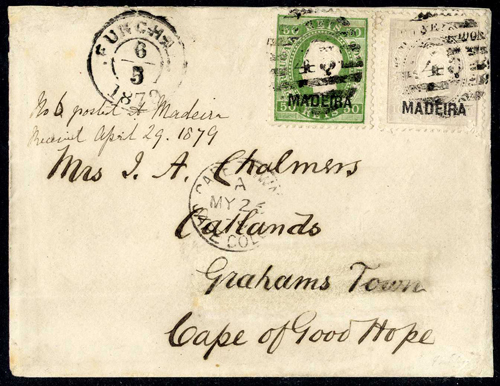 FUNCHAL
6
5
1879
MADEIRA
MADEIRA
No posted Madeira
Received April 29. 1879
Mrs J. A. Chalmers
CAPE TOWN
A
MY 2
CAPE COL
Oatlands
Grahams Town
Cape of Good Hope